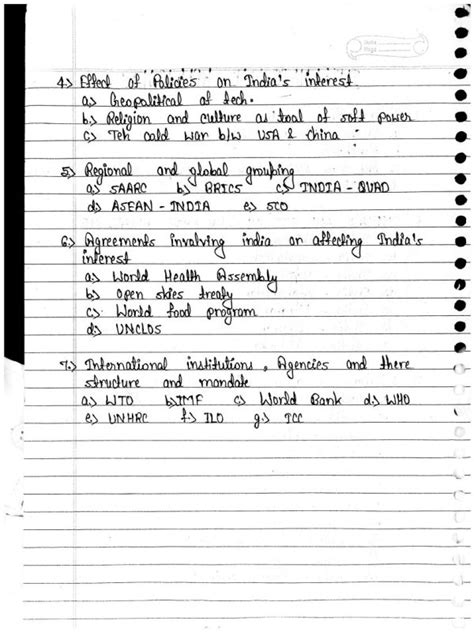 4.) Effect of Policies on India's interest
a) Geopolitical of tech.
b.) Religion and culture as tool of soft power
c) Teh cold war b/w USA & China
5.) Regional and global grouping
a) SAARC b) BRICS c) INDIA - QUAD
d) ASEAN - INDIA e) SCO
6.) Agreements involving india or affecting India's
interest
a) World Health Assembly
b) Open skies treaty
c) World food program
d) UNCLOS
7.) International institutions, Agencies and there
structure and mandate
a) WTO b) IMF c) World Bank d.) WHO
e) UNHRC f.) ILO g.) ICC